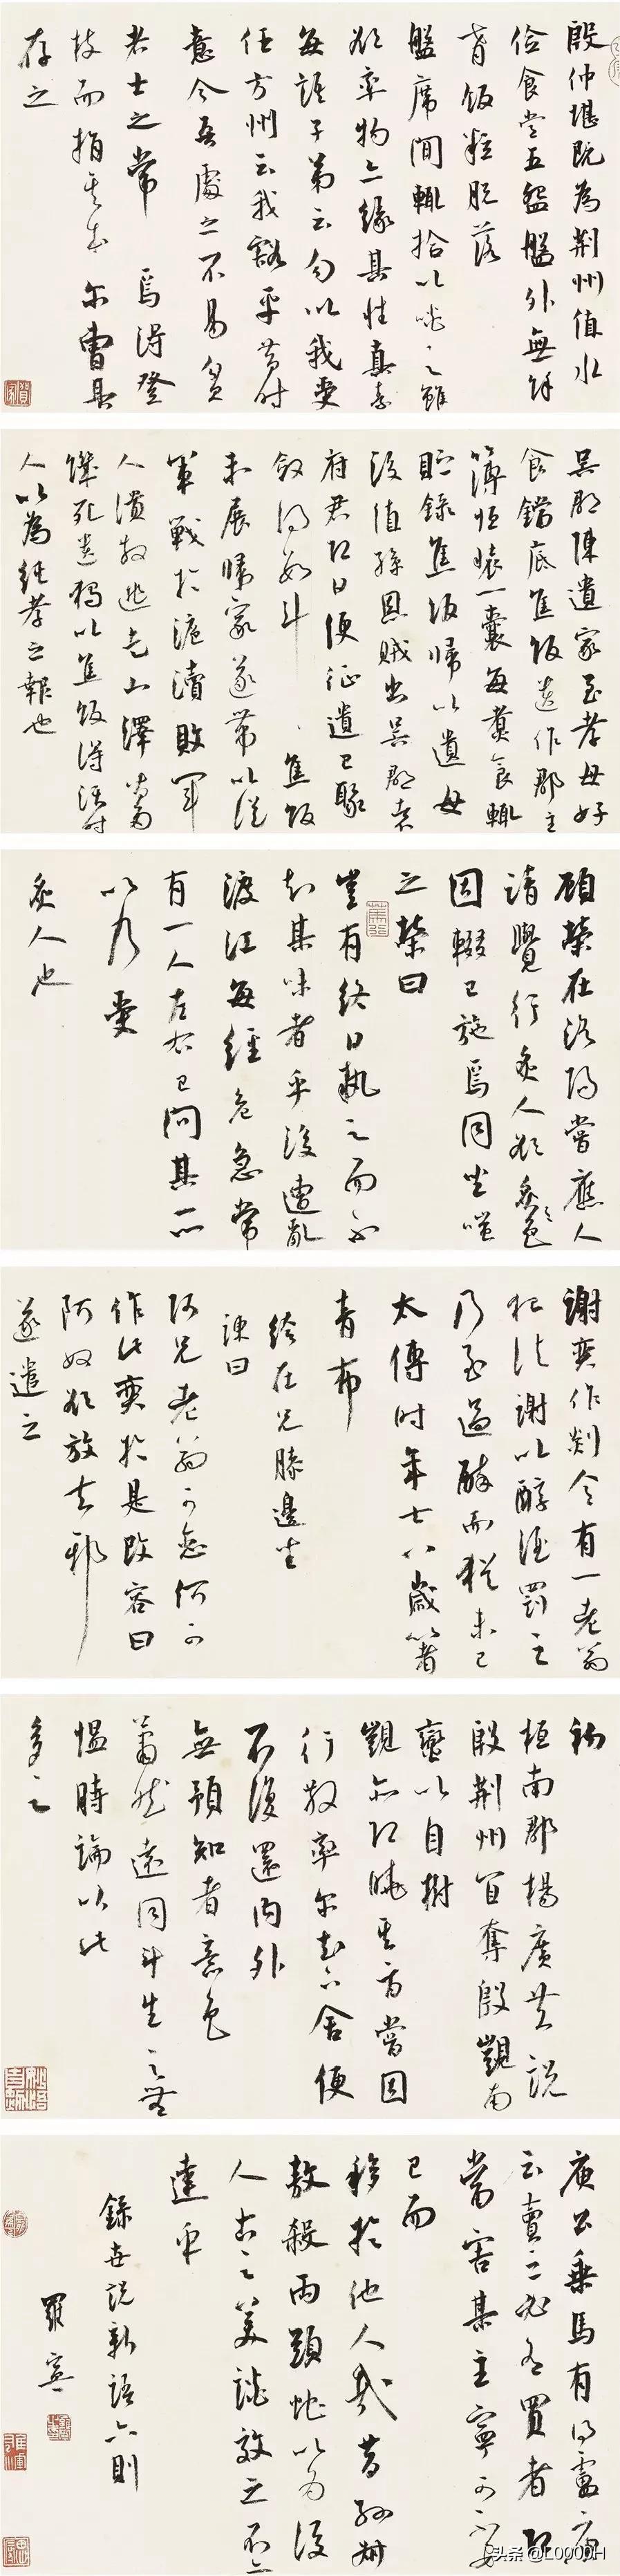 殷仲堪既為荆州值水
儉食常五盌盤外無餘
肴飯粒脫落
盤席間輒拾以啖之雖
欲率物亦緣其性真素
每語子弟云勿以我受
任方州云我豁平昔時
意今吾處之不易貧
者士之常 焉得登
枝而捐其本 爾曹其
存之
吳郡陳遺家至孝母好
食鐺底焦飯遺作郡主
簿恒裝一囊每煑食輒
貯錄焦飯歸以遺母
後值孫恩賊出吳郡袁
府君即日便征遺已聚
斂得數斗 焦飯
未展歸家遂帶以從
軍戰於滬瀆敗軍
人潰散逃走山澤皆多
饑死遺獨以焦飯得活時
人以為純孝之報也
顧榮在洛陽嘗應人
請覺行炙人欲炙之色
因輟已施焉同坐嗤
之榮曰
豈有終日執之而不
知其味者乎後遭亂
渡江每經危急常
有一人左右已問其所
以乃受
炙人也
謝奕作剡令有一老翁
犯法謝以醇酒罰之
乃至過醉而猶未已
太傅時年七八歲著
青布
絝在兄膝邊坐
諫曰
阿兄老翁可念何可
作此奕於是改容曰
阿奴欲放去邪
遂遣之
初
桓南郡楊廣共說
殷荆州宜奪殷覬南
蠻以自樹
覬亦即曉其旨嘗因
行散率爾去下舍便
不復還內外
無預知者意色
蕭然遠同鬥生之無
慍時論以此
多之
庾公乘馬有的盧或
云賣之必有買者即
當害其主寧可不安
已而
移於他人哉昔孫叔
敖殺兩頭蛇以為後
人古之美談效之不亦
達乎
錄世說新語六則
羅寧
头条 @L0000H